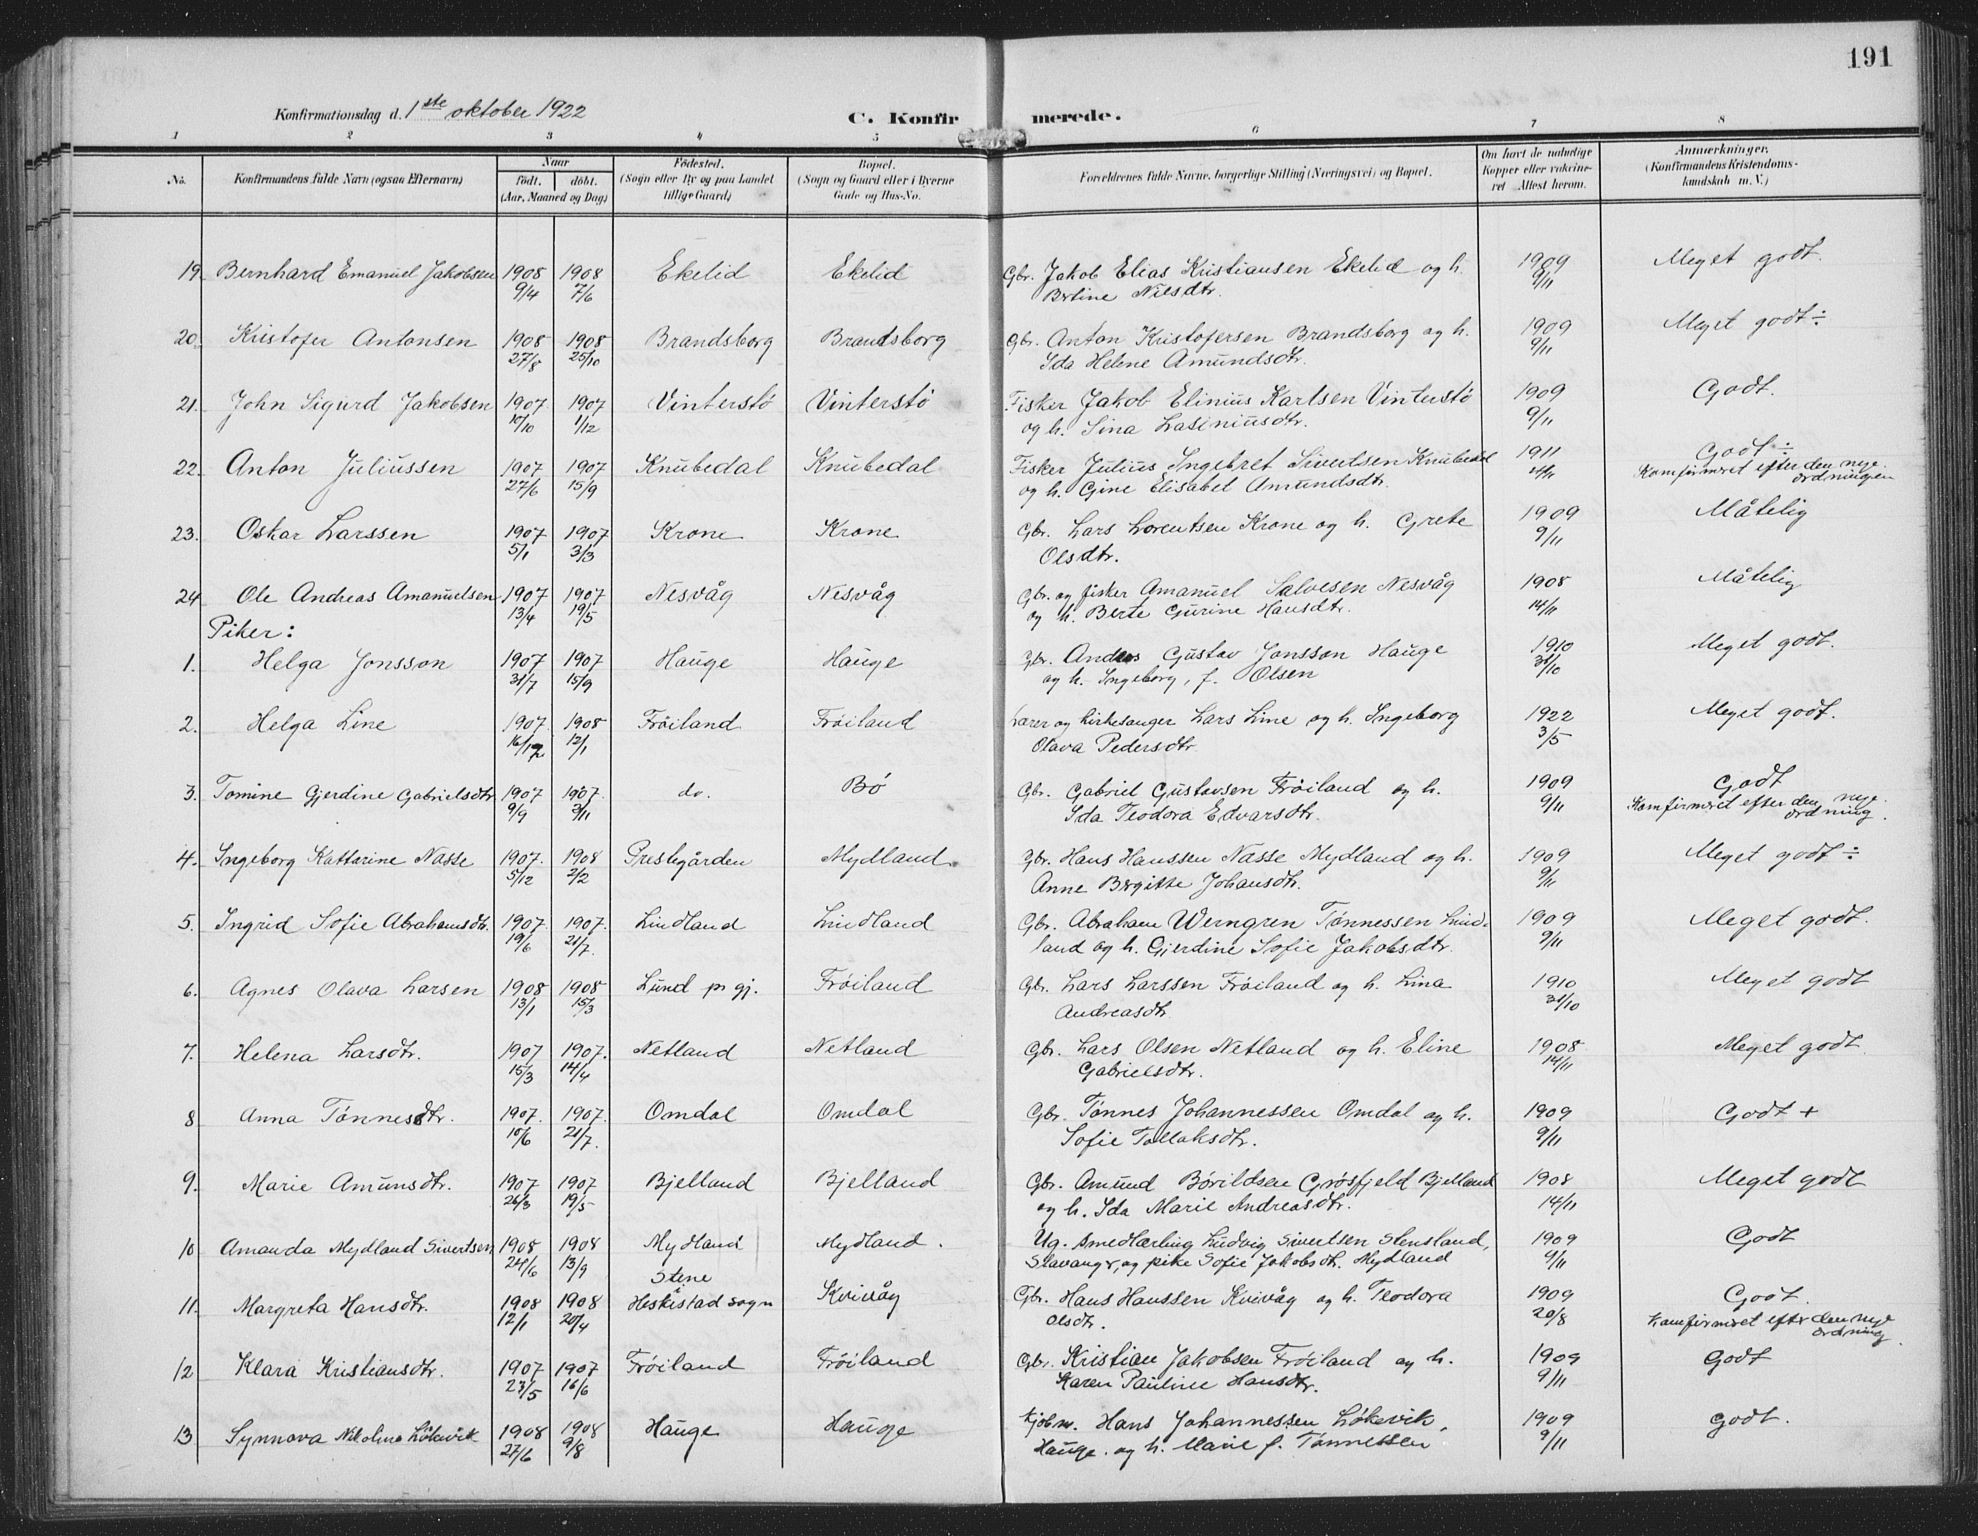 191
Konfirmationsdag d. 1ste oktober 1922
C. Konfirmerede.
1 2 3 4 5 6 7 8
No.
Konfirmandens fulde Navn (ogsaa Efternavn)
Naar
födt. döbt.
(Aar, Maaned og Dag)
Födested.
(Sogn eller By og paa Landet
tillige Gaard)
Bopæl.
(Sogn og Gaard eller i Byerne
Gade og Hus-No.
Forældrenes fulde Navne, borgerlige Stilling (Næringsvei) og Bopæl.
Om havt de naturlige
Kopper eller vakcine-
ret Attest herom.
Anmærkninger.
(Konfirmandens Kristendoms-
kundskab m. V.)
19. Bernhard Emanuel Jakobsen 1908 1908 Ekelid Ekelid Gbr. Jakob Elias Kristiansen Ekelid og h. 1909 Meget godt.
9/4 7/6 Bertine Nilsdtr. 9/11
20. Kristofer Antonsen 1908 1908 Brandsborg Brandsborg Gbr. Anton Kristofersen Brandsborg og h. 1909 Meget godt ÷
27/8 25/10 Ida Helene Amundsdtr. 9/11
21. John Sigurd Jakobsen 1907 1907 Vinterstö Vinterstö Fisker Jakob Elinius Karlsen Vinterstö 1909 Godt.
10/10 1/12 og h. Sina Lasiniusdtr. 9/11
22. Anton Juliussen 1907 1907 Knubedal Knubedal Fisker Julius Ingebret Sivertsen Knubedal 1911 Godt ÷
27/6 15/9 og h. Gine Elisabet Amundsdtr. Komfirmeret efter den nye
ordningen
23. Oskar Larssen 1907 1907 Krone Krone Gbr. Lars Lorentsen Krone og h. Grete 1909 Måtelig
5/1 3/3 Olsdtr. 9/11
24 Ole Andreas Amanuelsen 1907 1907 Nesvåg Nesvåg Gbr. og fisker Amanuel Salvesen Nesvåg 1908 Måtelig
13/4 19/5 og h. Berte Gurine Hansdtr. 14/11
Piker:
1. Helga Jonsson 1907 1907 Hauge Hauge Gbr. Anders Gustav Jonsson Hauge 1910 Meget godt.
31/7 15/9 og h. Ingeborg, f. Olsen 31/10
2. Helga Line 1907 1908 Fröiland Fröiland Lærer og kirkesanger Lars Line og h. Ingeborg 1922 Meget godt.
16/12 12/1 Olava Pedersdtr 3/5
3. Tomine Gjerdine Gabrielsdtr 1907 1907 do. Bö Gbr. Gabriel Gustavsen Fröiland og h. 1909 Godt
9/9 2/11 Ida Teodora Edvarsdtr. 9/11 Komfirmeret efter den nye
ordning.
4. Ingeborg Kattarine Nasse 1907. 1908 Prestegården Mydland Gbr. Hans Hanssen Nasse Mydland og h. 1909 Meget godt ÷
5/12 2/2 Anne Bergitte Johansdtr. 9/11
5. Ingrid Sofie Abrahamsdtr. 1907. 1907. Lindland Lindland Gbr. Abraham Werngren Tønnessen Lind- 1909 Meget godt.
19/6 21/7. land og h. Gjerdine Sofie Jakobsdtr. 9/11
6. Agnes Olava Larsen 1908 1908 Lund pr gj. Fröiland Gbr. Lars Larssen Fröiland og h. Lina 1910 Meget godt
13/1 15/3 Andreasdtr. 31/10
7. Helena Larsdtr. 1907 1907. Netland Netland Gbr. Lars Olsen Netland og h. Eline 1908 Meget godt
15/3 14/4 Gabrielsdtr. 14/11
8 Anna Tönnesdtr. 1907. 1907. Omdal Omdal Gbr. Tönnes Johannessen Omdal og h. 1909 Godt +
10/6 21/7. Sofie Tollaksdtr. 9/11
9. Marie Amunsdtr. 1907 1907 Bjelland Bjelland Gbr. Amund Börildsen Grösfjeld Bjelland 1908 Meget godt
26/3 19/5 og h. Ida Marie Andreasdtr. 14/11
10 Amanda Mydland Sivertsen 1908 1908 Mydland Mydland. Ug. smedlærling Ludvig Sivertsen Stensland, 1909 Godt
24/6 13/9 Stavanger, og pike Sofie Jakobsdtr. Mydland 9/11
Stene
11. Margreta Hansdtr. 1908 1908 Heskestad sogn Kvivåg Gbr. Hans Hanssen Kvivåg og h. Teodora 1909 Godt.
12/1 20/4 Olsdtr. 20/8 Komfirmeret efter den nye
ordning.
12 Klara Kristiansdtr. 1907 1907 Fröiland Fröiland Gbr. Kristian Jakobsen Fröiland og h. 1909 Godt
23/5 16/6 Karen Pauline Hansdtr. 9/11
13 Synnova Nikoline Lökevik 1908 1908 Hauge Hauge Kjöbm. Hans Johannessen Lökevik, 1909 Godt.
27/6 9/8 Hauge. og h. Marie f. Tönnessen 9/11